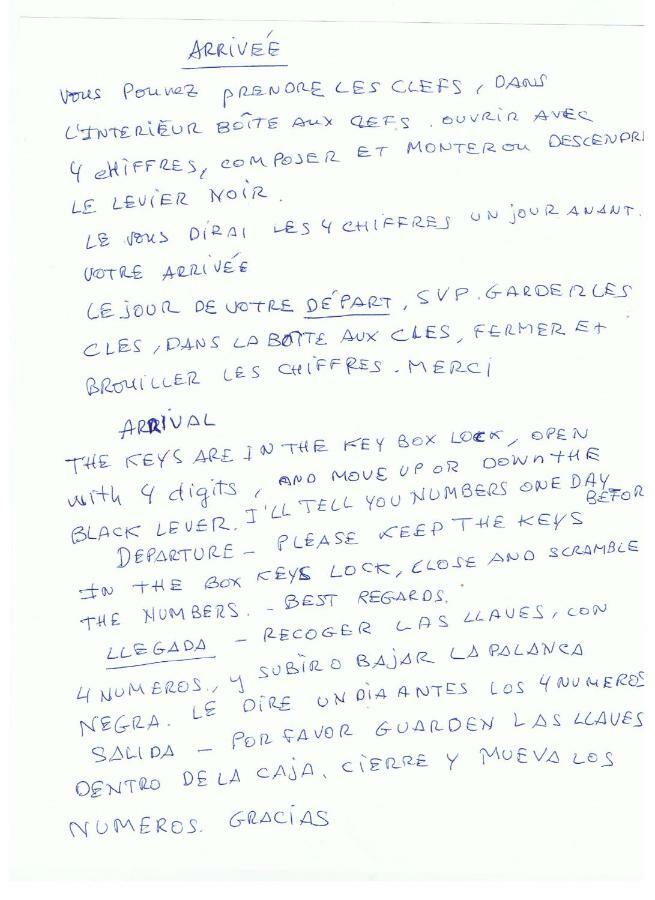 ARRIVEÉ
VOUS POUVEZ PRENDRE LES CLEFS, DANS
L'INTERIEUR BOÎTE AUX CLEFS. OUVRIR AVEC
4 CHIFFRES, COMPOSER ET MONTER OU DESCENDRE
LE LEVIER NOIR.
LE VOUS DIRAI LES 4 CHIFFRES UN JOUR AVANT.
VOTRE ARRIVÉE
LE JOUR DE VOTRE DÉPART, SVP. GARDER LES
CLES, DANS LA BOÎTE AUX CLES, FERMER ET
BROUILLER LES CHIFFRES. MERCI
ARRIVAL
THE KEYS ARE IN THE KEY BOX LOCK, OPEN
with 4 digits, AND MOVE UP OR DOWN THE
BLACK LEVER. I'LL TELL YOU NUMBERS ONE DAY BEFOR
DEPARTURE – PLEASE KEEP THE KEYS
IN THE BOX KEYS LOCK, CLOSE AND SCRAMBLE
THE NUMBERS. – BEST REGARDS.
LLEGADA – RECOGER LAS LLAVES, CON
4 NUMEROS., Y SUBIR O BAJAR LA PALANCA
NEGRA. LE DIRE UN DIA ANTES LOS 4 NUMEROS
SALIDA – POR FAVOR GUARDEN LAS LLAVES
DENTRO DE LA CAJA. CIERRE Y MUEVA LOS
NUMEROS. GRACIAS